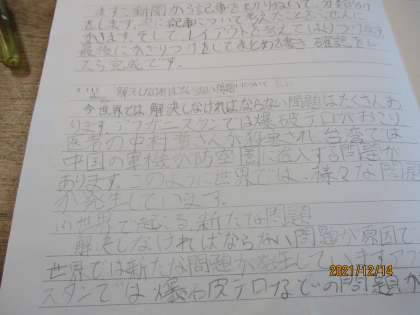 まずこ新聞から記事をもりぬいて、分
をします。次に記事について考えたことを、
かきます。そしてレイアウトを考えてはりつけ
最後にかざりつけをしてまとめを書き確認をし
たら完成です。
解決しなければならない問題について
今世界では解決しなければならない問題はたくさんあ
ります。アフガニスタンでは爆破テロがおこり
医者の中村哲さんが殺され、台湾では
中国の軍機が防空圏に進入する問題が
あります。このように世界では、様々な問題
が発生しています。
(1)世界で起こる、新たな問題
解決しなければならない問題が原因で
世界では新たな問題が発生しています。アフ
スタンでは爆破テロなどの問題が
2021/12/14